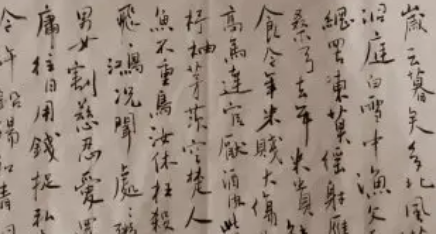 歲云暮矣多北風
洞庭白雪中漁父
網罟凍莫徭射雁
桑弓去年米貴
食今年米賤大傷
高馬達官厭酒肉此
杼柚茅茨空楚人
魚不重鳥汝休枉殺
飛鴻況聞處處鬻
男女割慈忍愛還
庸往日用錢捉私
今許鉛錫和青